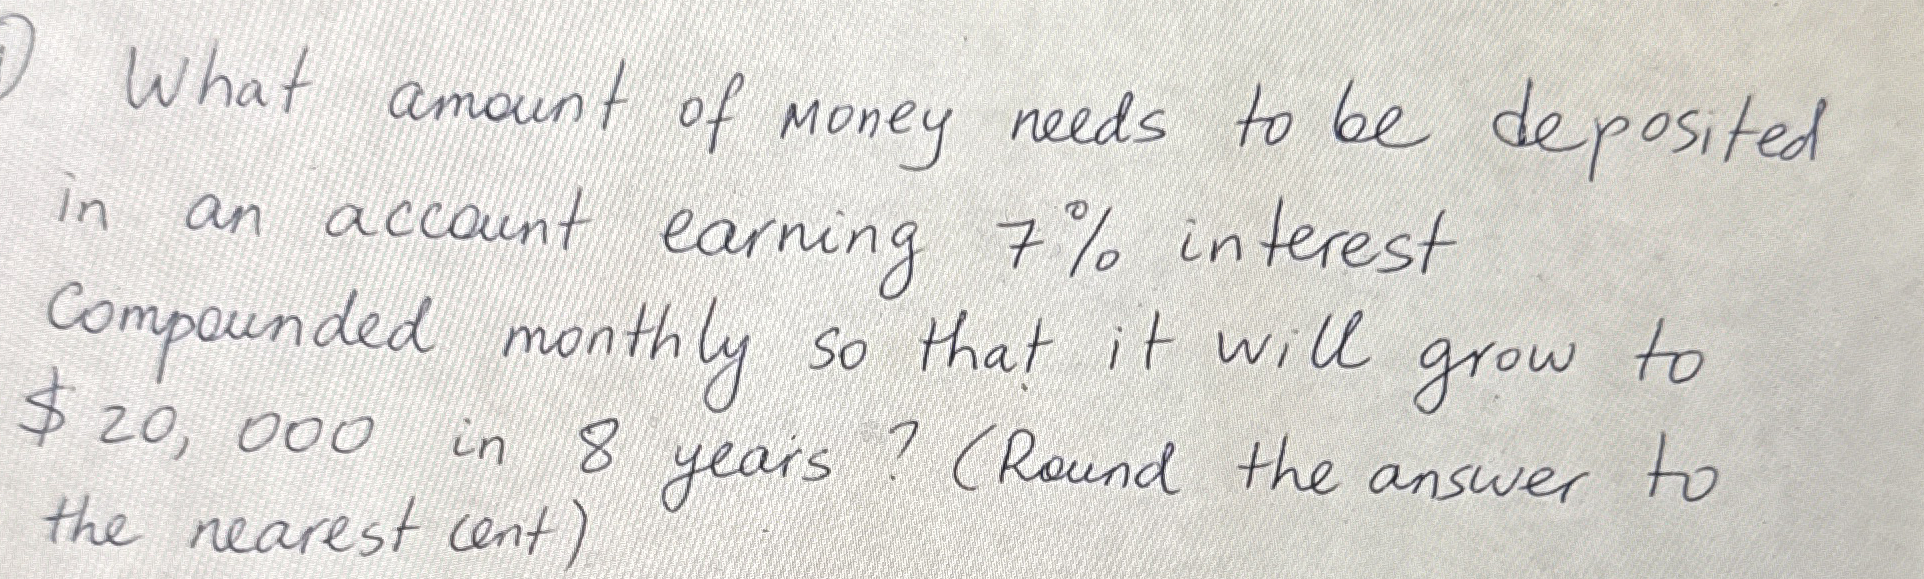 1) What amount of money needs to be deposited
in an account earning 7% interest
Compounded monthly so that it will grow to
$20,000 in 8 years? (Round the answer to
the nearest cent)